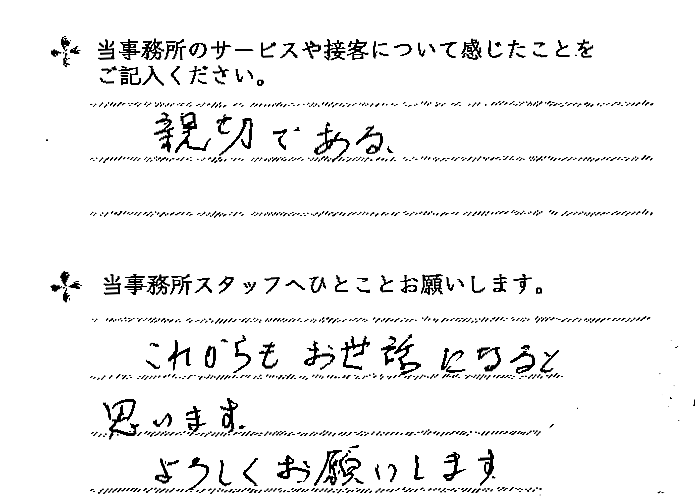 当事務所のサービスや接客について感じたことを
ご記入ください。
親切である、
当事務所スタッフへひとことお願いします。
これからもお世話になると
思います。
よろしくお願いします